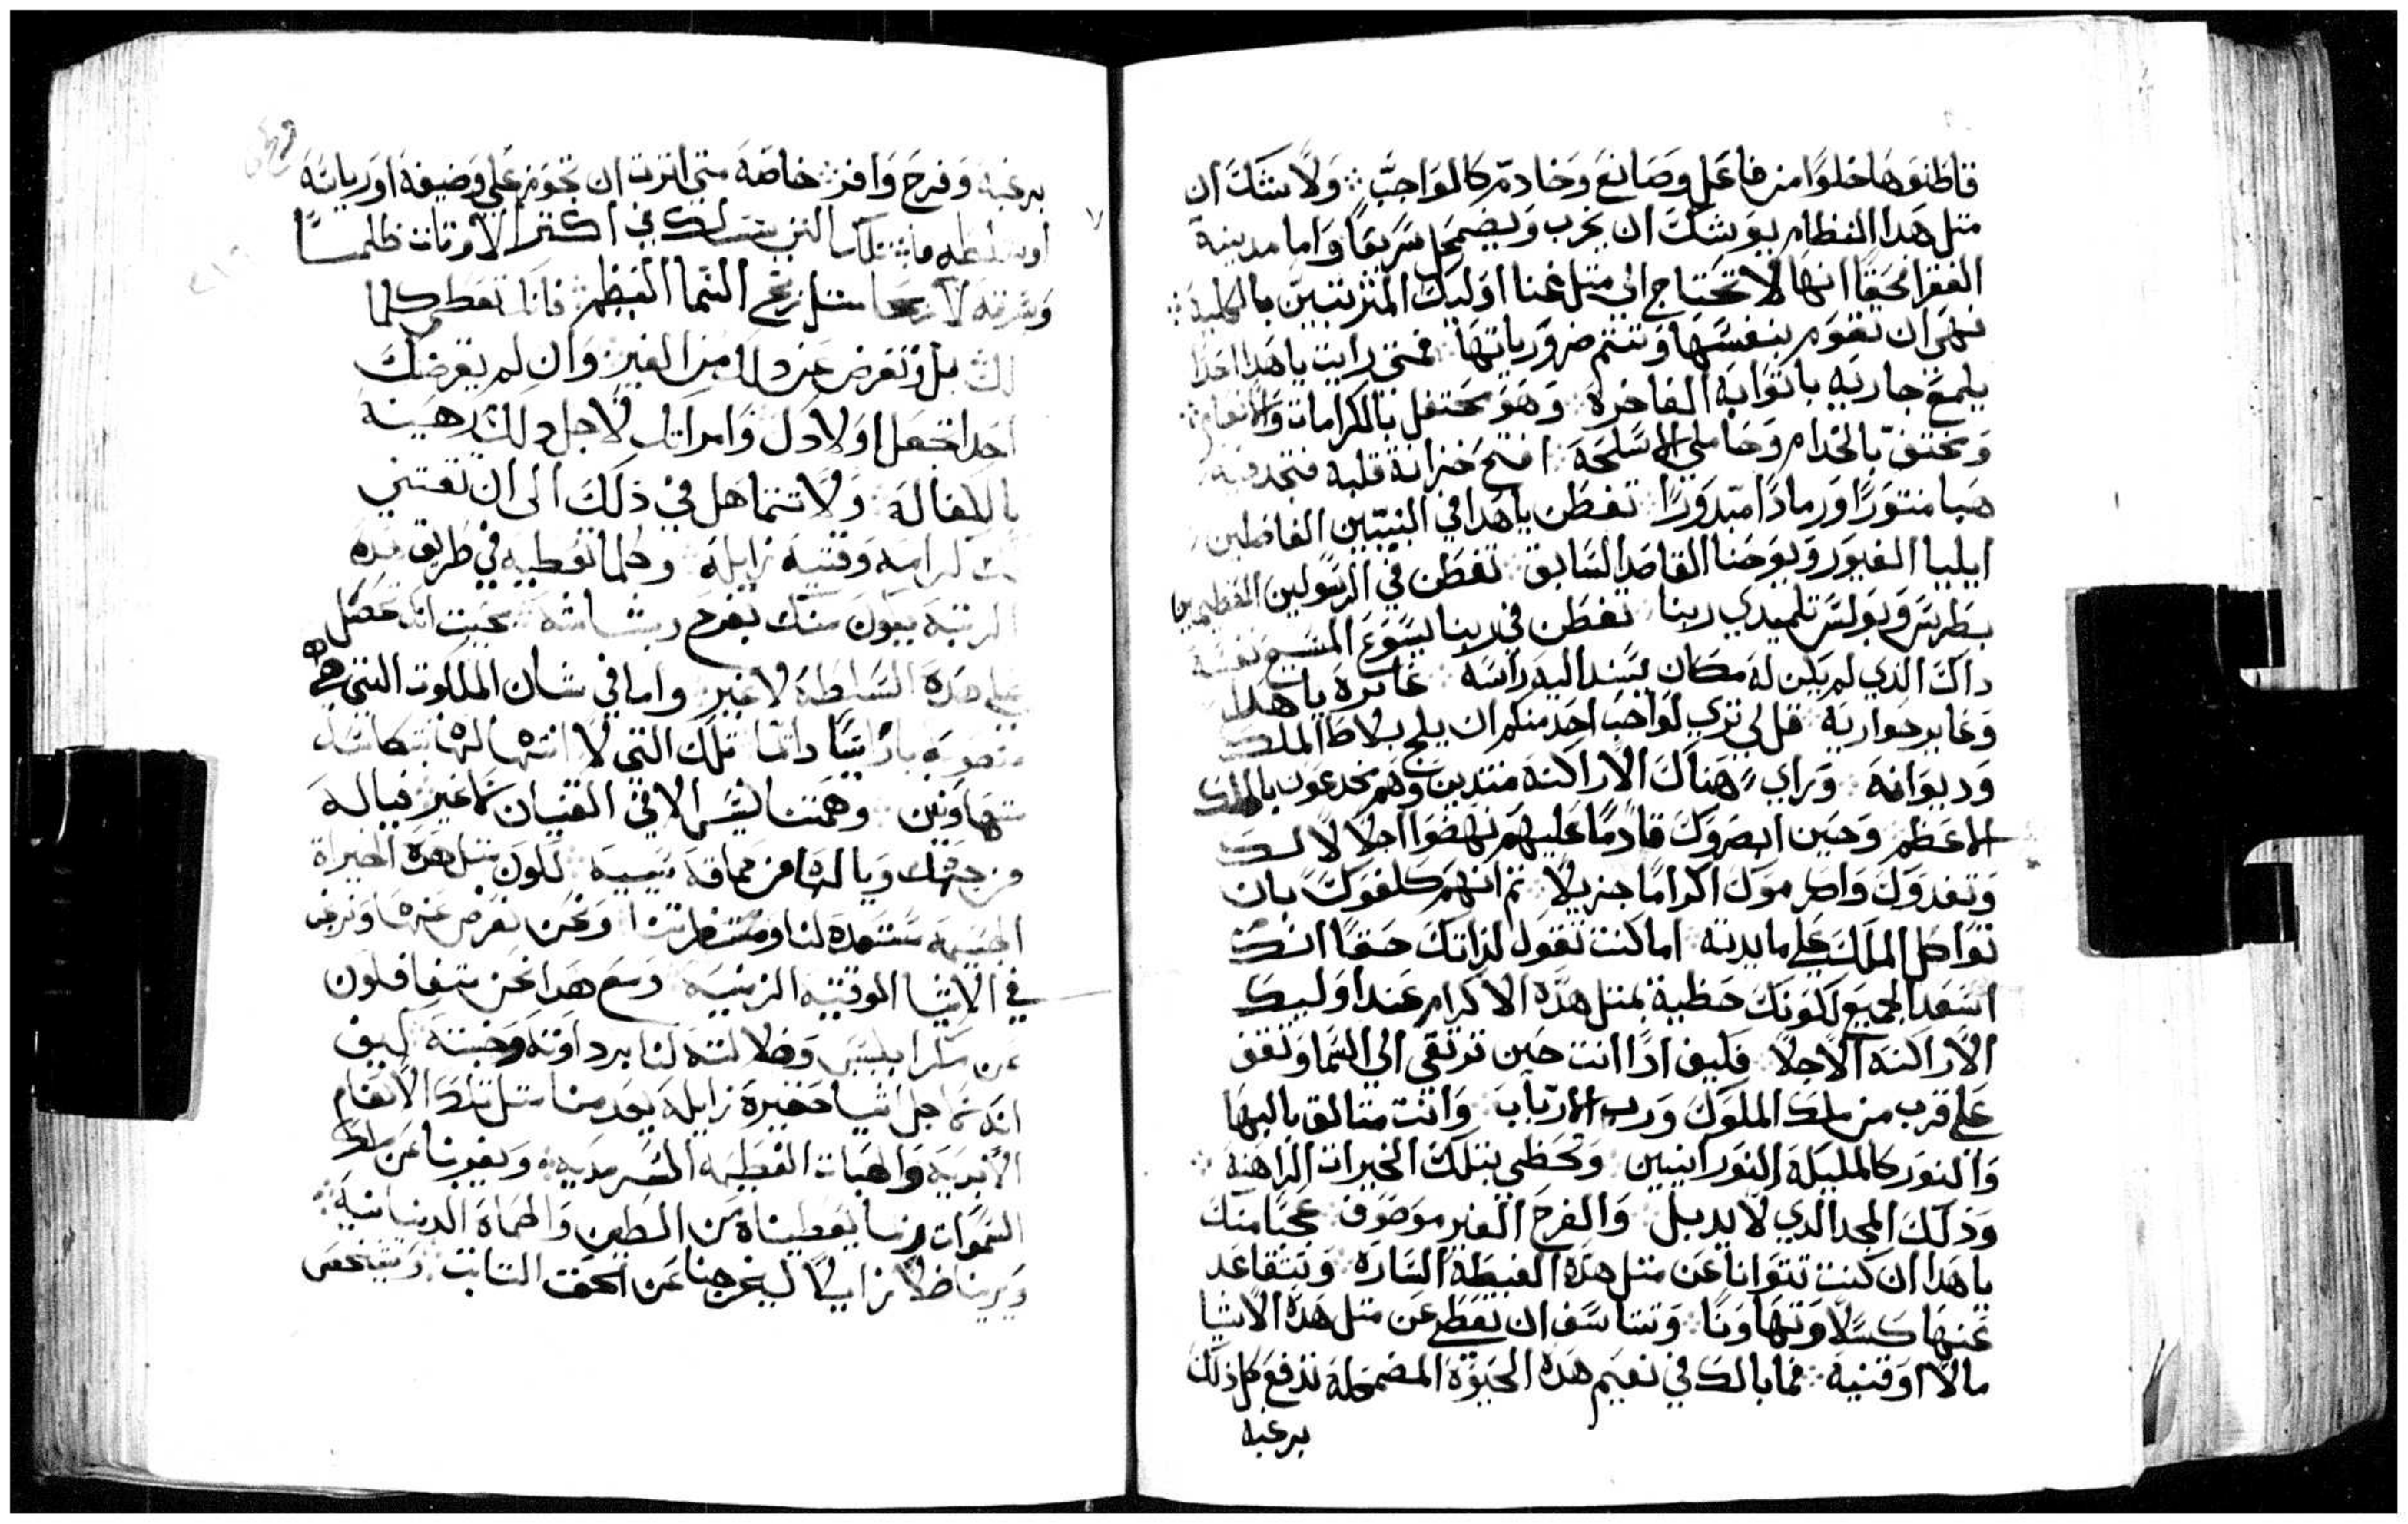 قاطنوها خلوًا من فاعل وصانع وخادم كالواجب ⁘ ولا شك ان
متل هدا النظام يوشك ان يخرب ويضمحل سريعًا واما مدينة
الفقرا حقًا انها لا تحتاج الى متل غنا اوليك المترتبين بالكلية ⁘
فهي ان تقوم بنفسها وتتمم ضرورياتها ⁘ فمتى رايت يا هدا احدًا
يلمع جاريه باتوابه الفاخرة ⁘ وهو محتفل بالكرامات والانعام ⁘
ومحتف بالخدام وحاملي الاسلحة ⁘ افتح خزانة قلبه فتجد فيه
هبا منتورًا ورمادًا مبدورًا ⁘ تفطن يا هدا في النبيين الفاضلين
ايليا الغيور ويوحنا القاصد السابق ⁘ تفطن في الرسولين العظيمين
بطرس وبولس تلميدي ربنا ⁘ تفطن في ربنا يسوع المسيح نفسه
داك الذي لم يكن له مكان يسند اليه راسه ⁘ غايره يا هدا
وغاير حواريه ⁘ قل لي ترى لواجب احد منكم ان يلج بلاط الملك
وديوانه ⁘ وراى هناك الاراكنة منتدبين وهم يخدعون بالملك
الاعظم وحين ابصروك قادمًا عليهم نهضوا اجلالًا لك
وتفدوك واكرموك اكرامًا جزيلًا ⁘ تم انهم كلفوك بان
تواكل الملك على مايدته ⁘ اما كنت تقول لذاتك حقًا انك
اسعد الجميع لكونك حظية بمتل هذه الاكرام عند اوليك
الاراكنة الاجلا ⁘ فكيف ادًا انت حين ترتقي الى السما وتقف
على قرب من ملك الملوك ورب الارباب ⁘ وانت متالق بالبها
والنور كالمليكة النورانيين ⁘ وتحظى بتلك الخيرات الراهنة ⁘
وذلك المجد الذي لا يدبل ⁘ والفرح الغير موصوف ⁘ عجبًا منك
يا هدا ان كنت تتوانا عن متل هذه الغبطة السارة ⁘ وتتقاعد
عنها كسلًا وتهاونًا ⁘ وتتاسف ان تعطي عن متل هذه الاشيا
مالًا او قنية ⁘ فما بالك في نعيم هذه الحيوة المضمحلة تدفع كل ذلك
برغبه
برغبة وفرح وافر ⁘ خاصة متى اترت ان تحوز على وضيفة او رياسة
التي تسلك في اكتر الاوقات ظلمًا
السما العظيم ⁘ فانك تعطي كلما
لك بل وتقرض عن ذلك من الغير ⁘ وان لم يقرضك
احد اتجعل اولادك وامراتك لاجل ذلك رهينة
بالكفالة ⁘ ولا تتماهل في ذلك الى ان تقتني
كرامه وقتية زايلة ⁘ وكلما تعطيه في طريق هذه
الرتبة يكون منك بفرح وبشاشة ⁘ بحيت انك تحصل
على هذه السلطة لا غير ⁘ واما في شان الملكوت التي هي
دايمًا تلك التي لا انتها لها نتكاسل
متهاونين ⁘ وهمتنا ليس الا في القنيان
من جهلك ويا لها من حماقة ⁘ لكون متل هذه الخيراة
الجسيمة مستعدة لنا ومنتظرتنا ⁘ ونحن نعرض عنها ونرغب
في الاشيا الوقتية الزمنية ⁘ ومع هدا نحن متغافلون
عن مكر ابليس وضلالته لنا برداوته وخبته كيف
انه من اجل اشيا حقيرة زايلة يعدمنا متل تلك الانعام
الابدية والهبات العظيمة السرمدية ⁘ ويغربنا عن ملك
السموات بما يعطيناه من الطين والحماة الدنيانية ⁘
ويرينا ظلًا زايلًا ليخرجنا عن الحق التابت ⁘